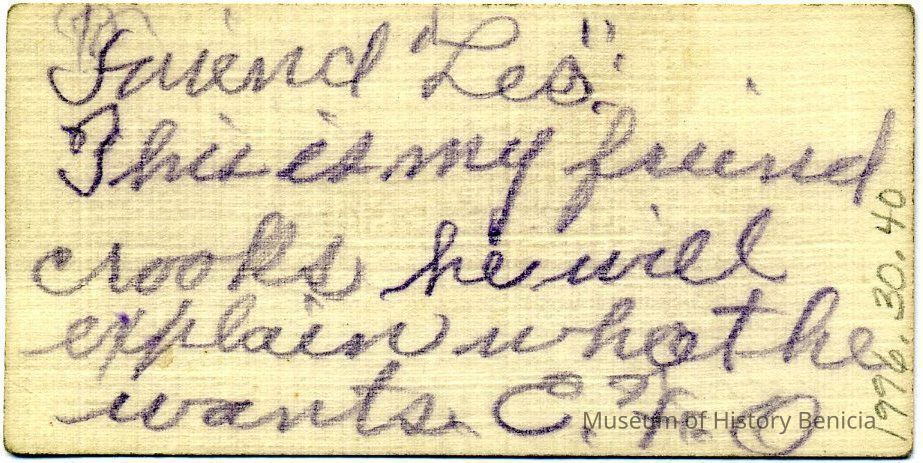 Friend "Leo".
This is my friend
crooks he will
explain what he
wants. C. H. O
1996.30.40
Museum of History Benicia